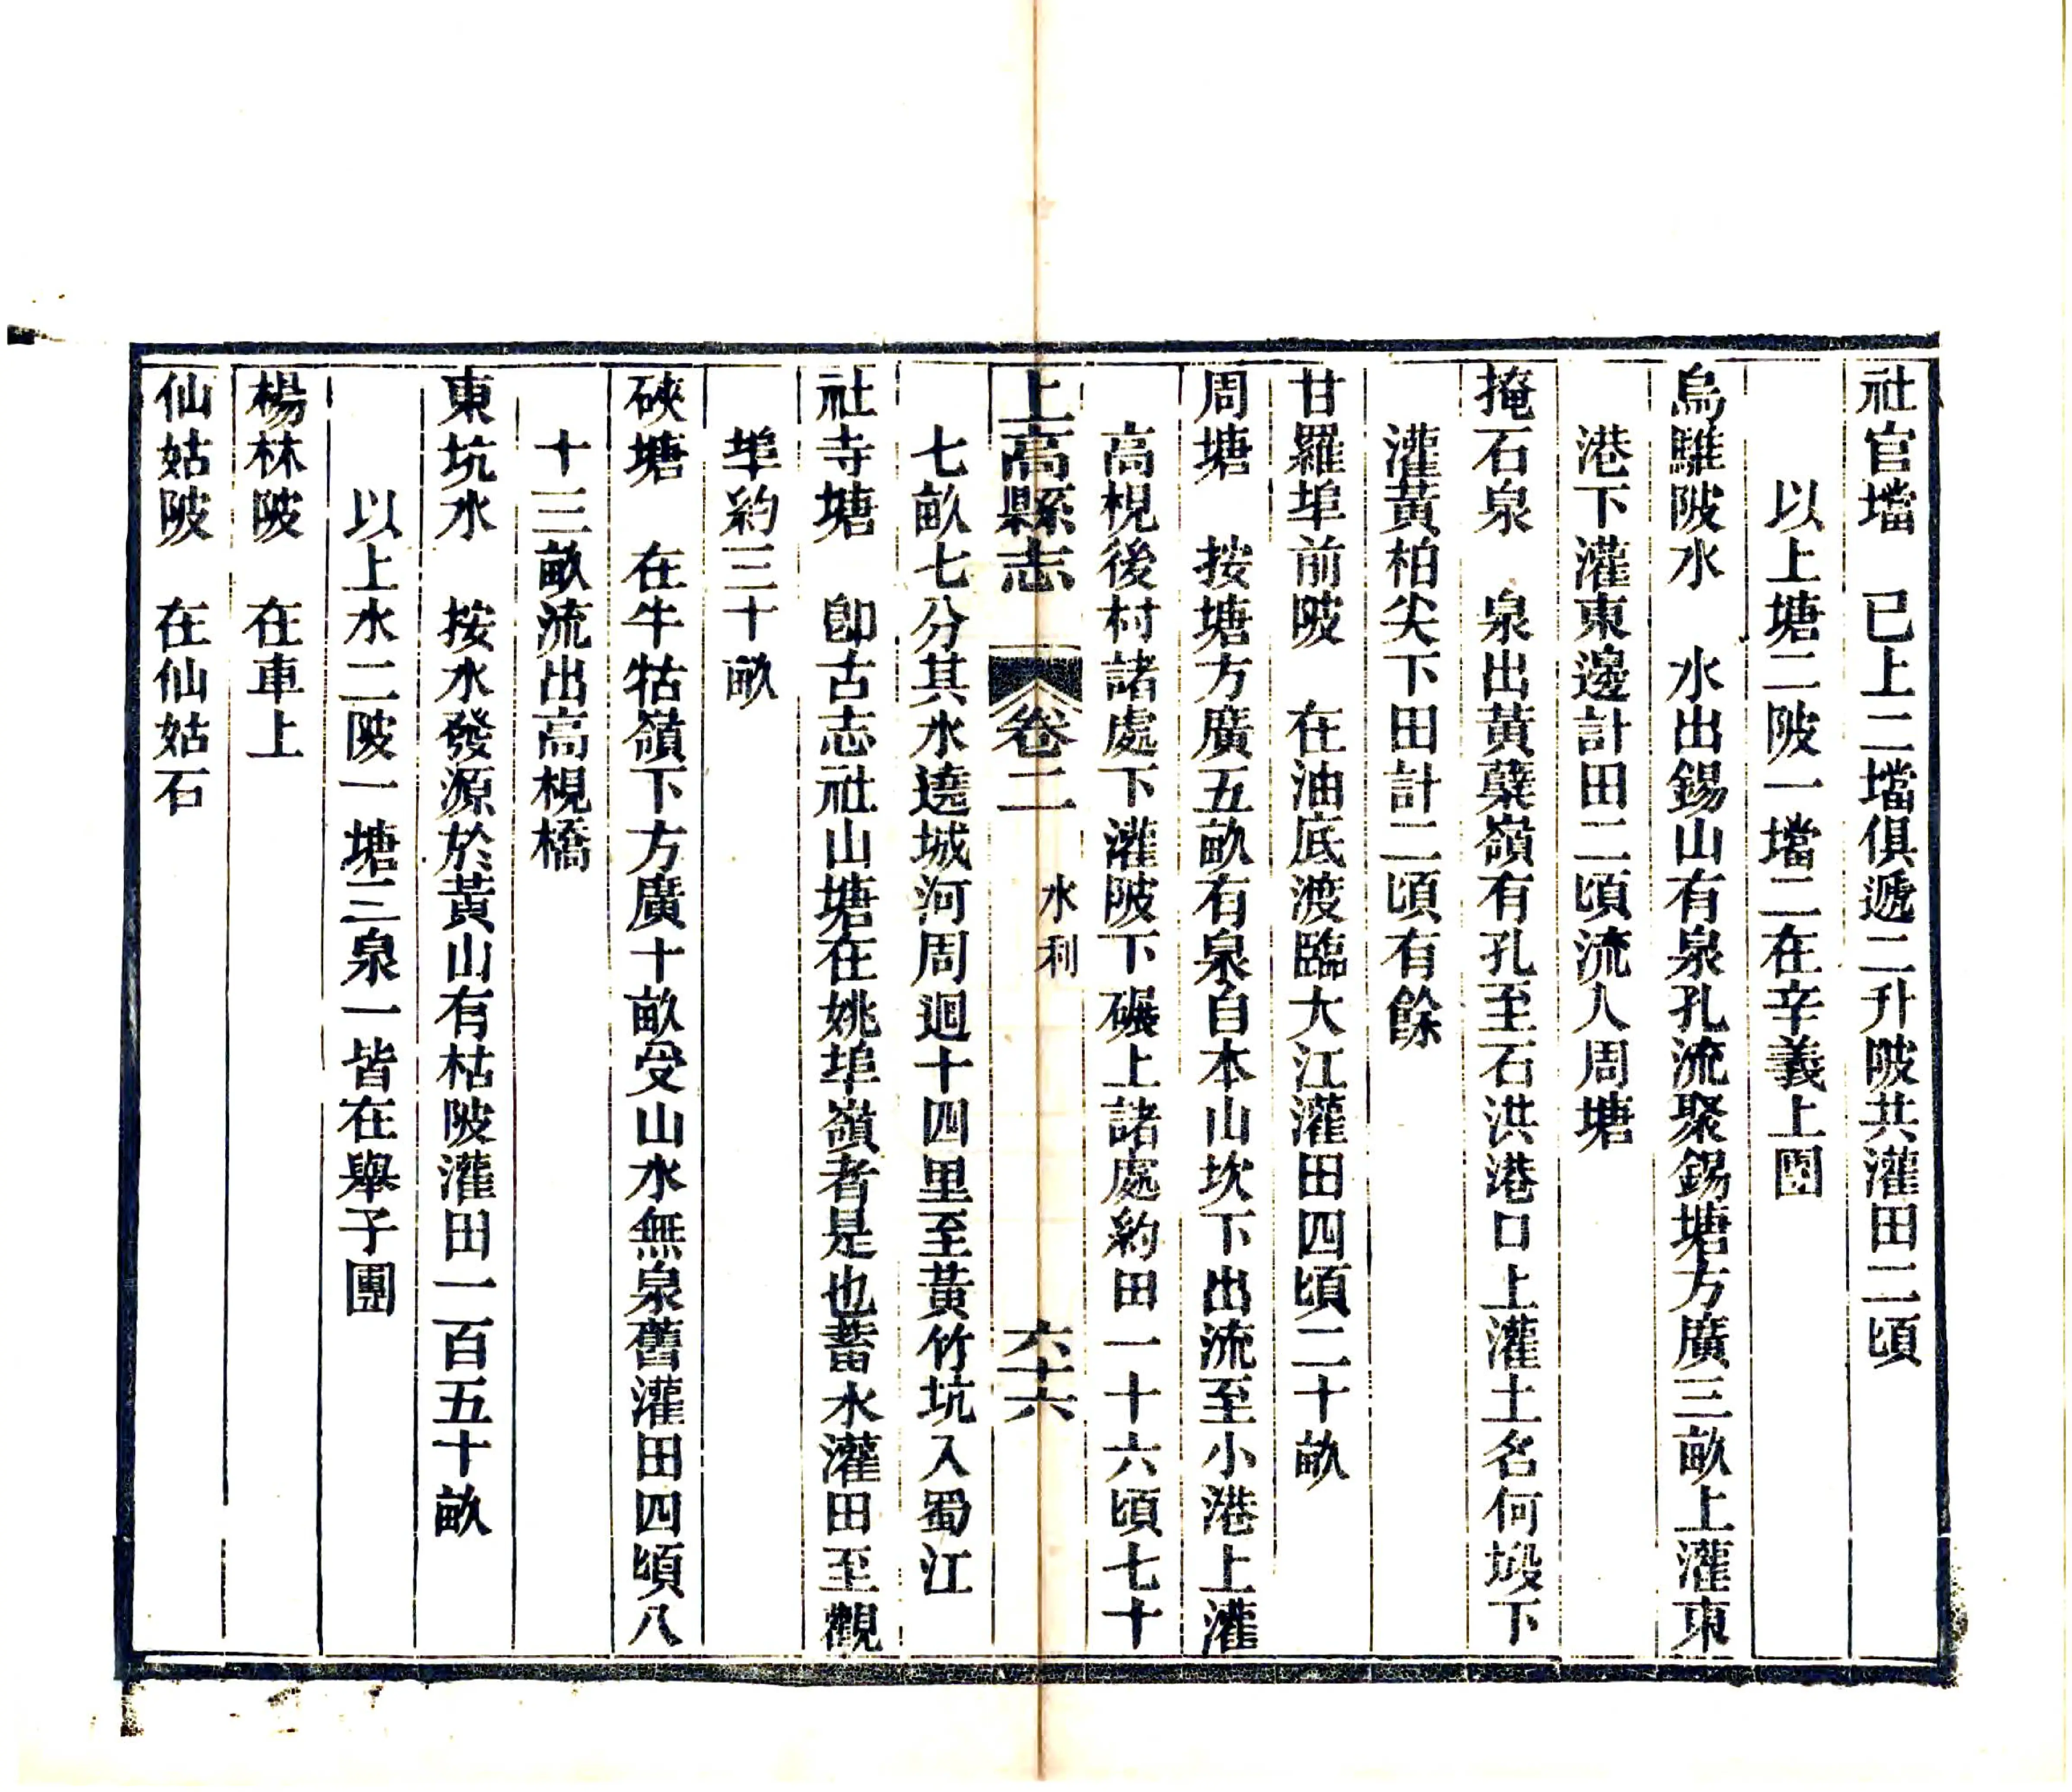 社官壋　已上二壋俱遞二升陂共灌田二頃
以上塘二陂一壋二在辛義上團
烏騅陂水　水出錫山有泉孔流聚錫塘方廣三畝上灌東
港下灌東邊計田二頃流入周塘
掩石泉　泉出黃蘖嶺有孔至石洪港口上灌土名何塅下
灌黃柏尖下田計二頃有餘
甘羅埠前陂　在油底渡臨大江灌田四頃二十畝
周塘　按塘方廣五畝有泉自本山坎下出流至小港上灌
高梘後村諸處下灌陂下碾上諸處約田一十六頃七十
上高縣志　卷二　水利　六十六
七畝七分其水遶城河周迴十四里至黃竹坑入蜀江
社寺塘　卽古志社山塘在姚埠嶺者是也蓄水灌田至觀
埠約三十畝
硤塘　在牛牯嶺下方廣十畝受山水無泉舊灌田四頃八
十三畝流出高梘橋
東坑水　按水發源於黃山有枯陂灌田一百五十畝
以上水二陂一塘三泉一皆在舉子團
楊林陂　在車上
仙姑陂　在仙姑石